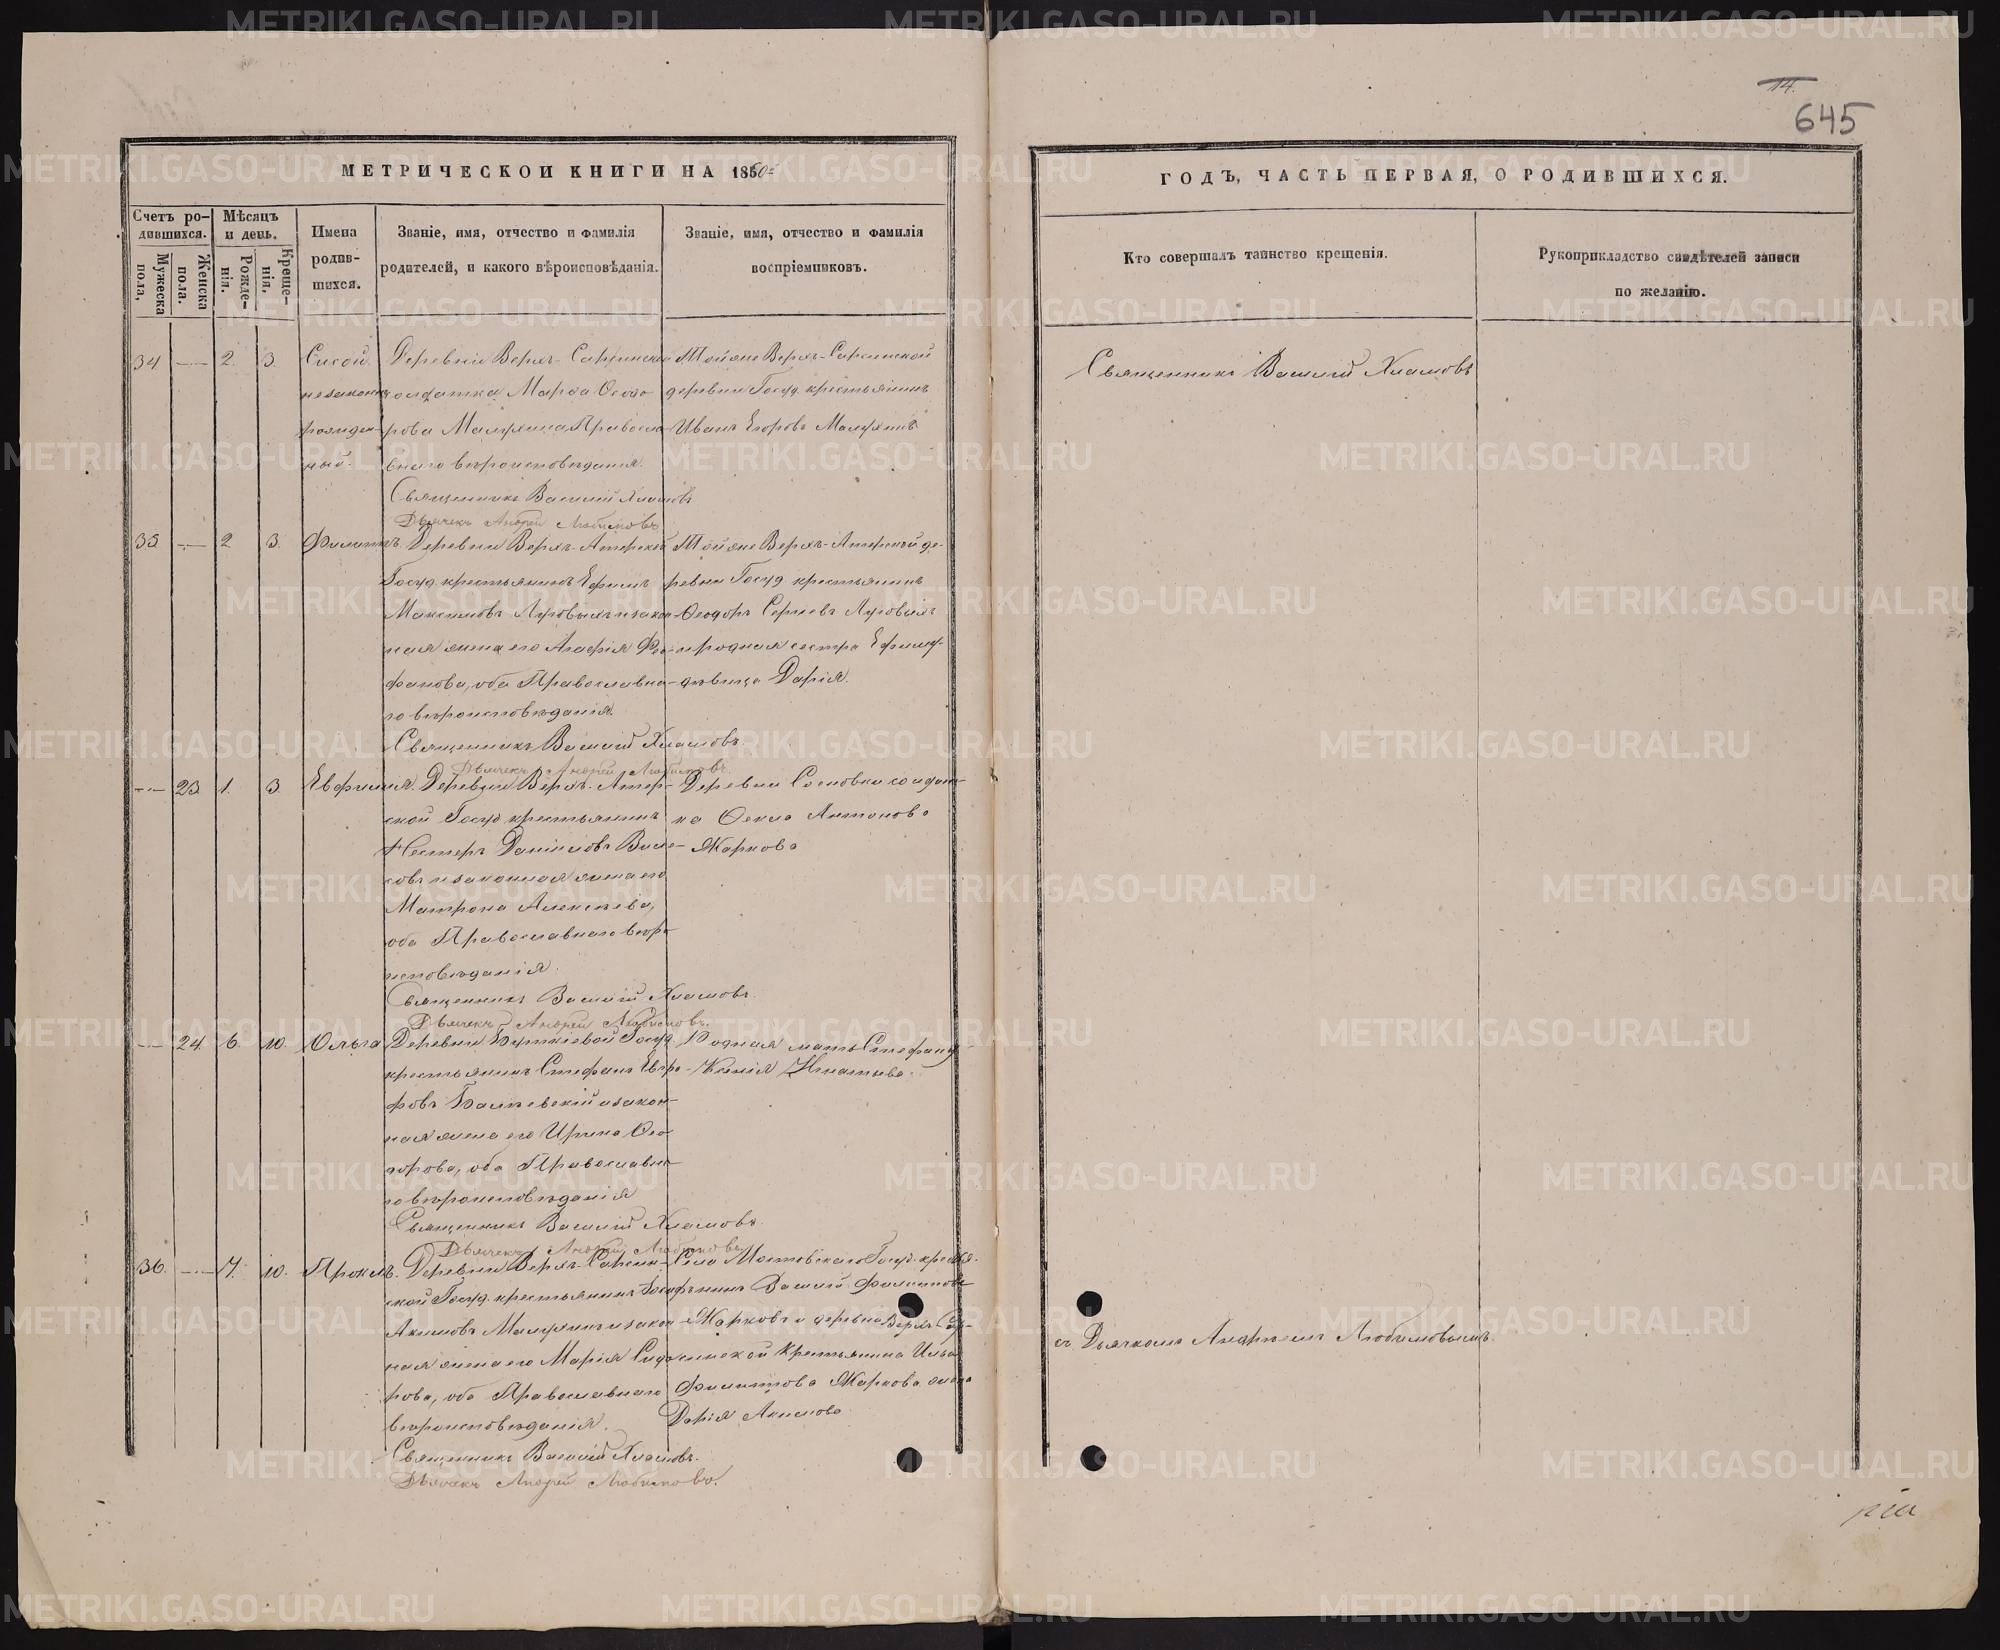 14.
645
МЕТРИЧЕСКОЙ КНИГИ НА 1860й
ГОДЪ, ЧАСТЬ ПЕРВАЯ, О РОДИВШИХСЯ.
Счетъ ро-
дившихся.
Мужеска пола,
Женска пола.
Мѣсяцъ
и день.
Рожде-
нія.
Креще-
нія.
Имена
родив-
шихся.
Званіе, имя, отчество и фамилія
родителей, и какого вѣроисповѣданія.
Званіе, имя, отчество и фамилія
воспріемниковъ.
Кто совершалъ таинство крещенія.
Рукоприкладство свидѣтелей записи
по желанію.
34 — 2. 3.
Сисой.
незаконно
рожден-
ный.
Деревни Верхъ-Сарсинской
солдатка Марѳа Ѳеодо-
рова Малухина, Правосла-
внаго вѣроисповѣданія.
Священникъ Василій Хламовъ
Дьячекъ Андрей Любимовъ
Той же Верхъ-Сарсинской
деревни Госуд. крестьянинъ
Иванъ Егоровъ Малухинъ
Священникъ Василій Хламовъ
35 — 2 3.
Филиппъ.
Деревни Верхъ-Атерской
Госуд. крестьянинъ Ефимъ
Максимовъ Луговыхъ и закон-
ная жена его Агафія Ѳео-
фанова, оба Православна-
го вѣроисповѣданія.
Священникъ Василій Хламовъ.
Дьячекъ Андрей Любимовъ.
Той же Верхъ-Атерской де-
ревни Госуд. крестьянинъ
Ѳеодоръ Сергѣевъ Луговыхъ
и родная сестра Ефиму-
дѣвица Дарія.
— 23. 1. 3.
Евфимія.
Деревни Верхъ-Атер-
ской Госуд. крестьянинъ
Нестеръ Даниловъ
и законная жена его
Матрона Алексѣева,
оба Православнаго вѣро-
исповѣданія.
Священникъ Василій Хламовъ.
Дьячекъ Андрей Любимовъ.
Деревни Сосновки солдат-
ка Ѳекла Антонова
Жаркова
— 24. 6. 10.
Ольга
Деревни Госуд.
крестьянинъ Стефанъ
и закон-
ная жена его Ирина Ѳео-
дорова, оба Православна-
го вѣроисповѣданія
Священникъ Василій Хламовъ.
Дьячекъ Андрей Любимовъ
Родная мать Стефану
Ксенія Игнатьева.
36. — 7. 10.
Проклъ.
Деревни Верхъ-Сарсин-
ской Госуд. крестьянинъ
Акимовъ Малухинъ и закон-
ная жена его Марія Сидо-
рова, оба Православнаго
вѣроисповѣданія.
Священникъ Василій Хламовъ.
Дьячекъ Андрей Любимовъ.
Села Мостовскаго Госуд. крестья-
нинъ Василій Филипповъ
Жарковъ и деревни Верхъ-Сар-
синской крестьянина Ильи
Филиппова Жаркова жена
Дарія Акимова.
съ Дьячкомъ Андреемъ Любимовымъ.
METRIKI.GASO-URAL.RU